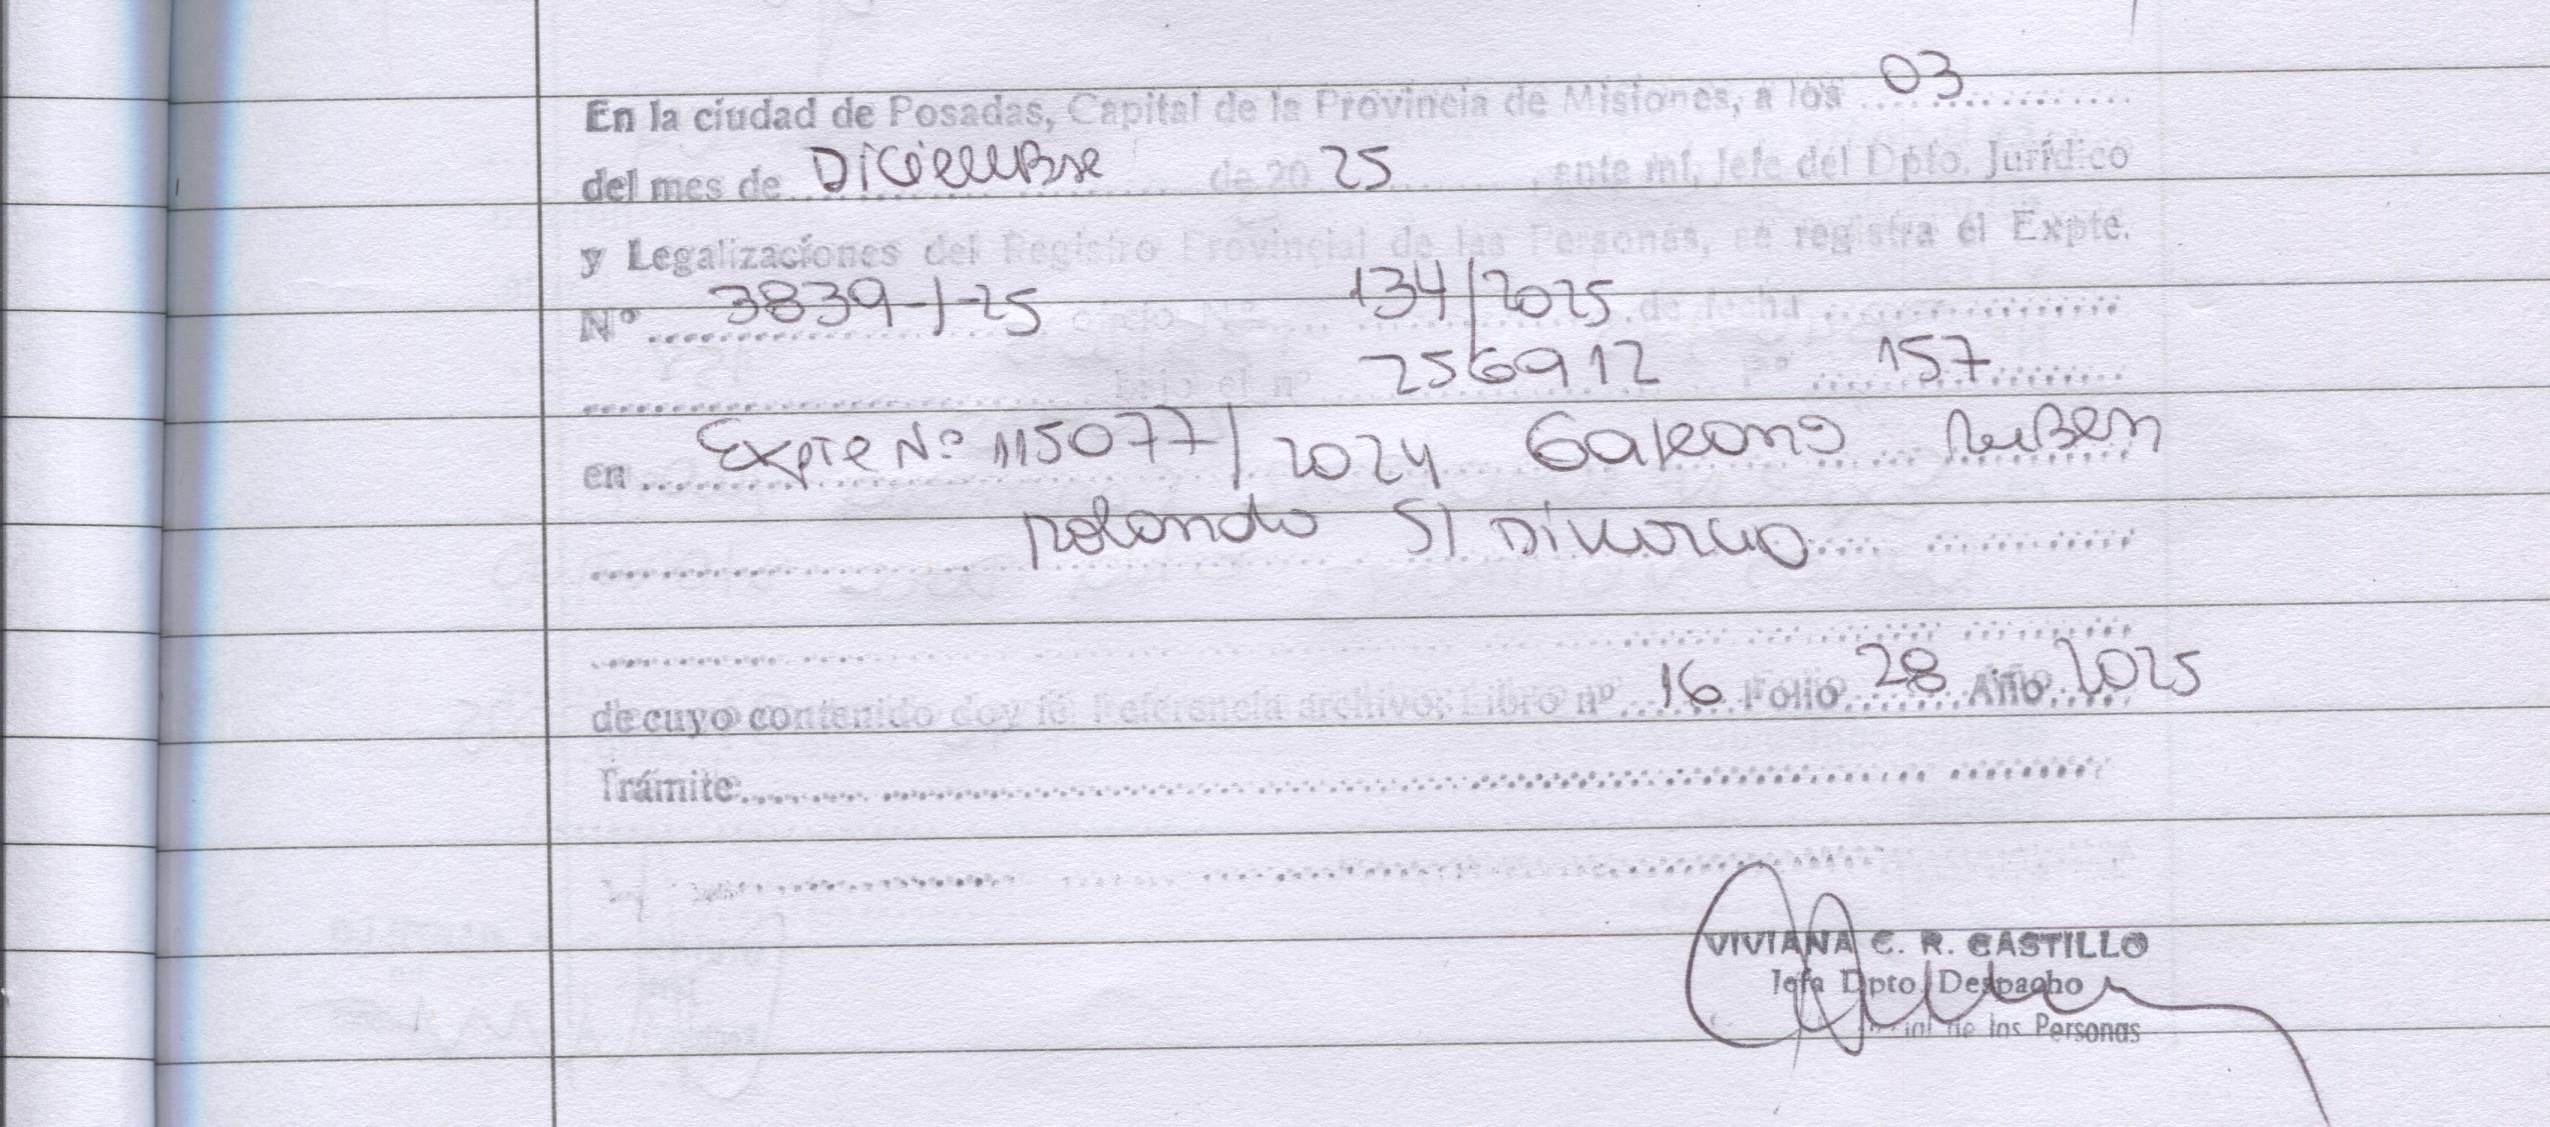 En la ciudad de Posadas, Capital de la Provincia de Misiones, a los 03
del mes de Diciembre de 20 25 , ante mí, Jefe del Dpto. Jurídico
y Legalizaciones del Registro Provincial de las Personas, se registra el Expte.
Nº 3839-1-25 oficio Nº 134/2025 de fecha
bajo el nº 256912 Fº 157
en Expte Nº 115077/2024 Galeano Ruben
Rolando S/ Divorcio
de cuyo contenido doy fé. Referencia archivo: Libro nº 16 Folio 28 Año 2025
Trámite:
VIVIANA C. R. CASTILLO
Jefa Dpto. Despacho
de las Personas